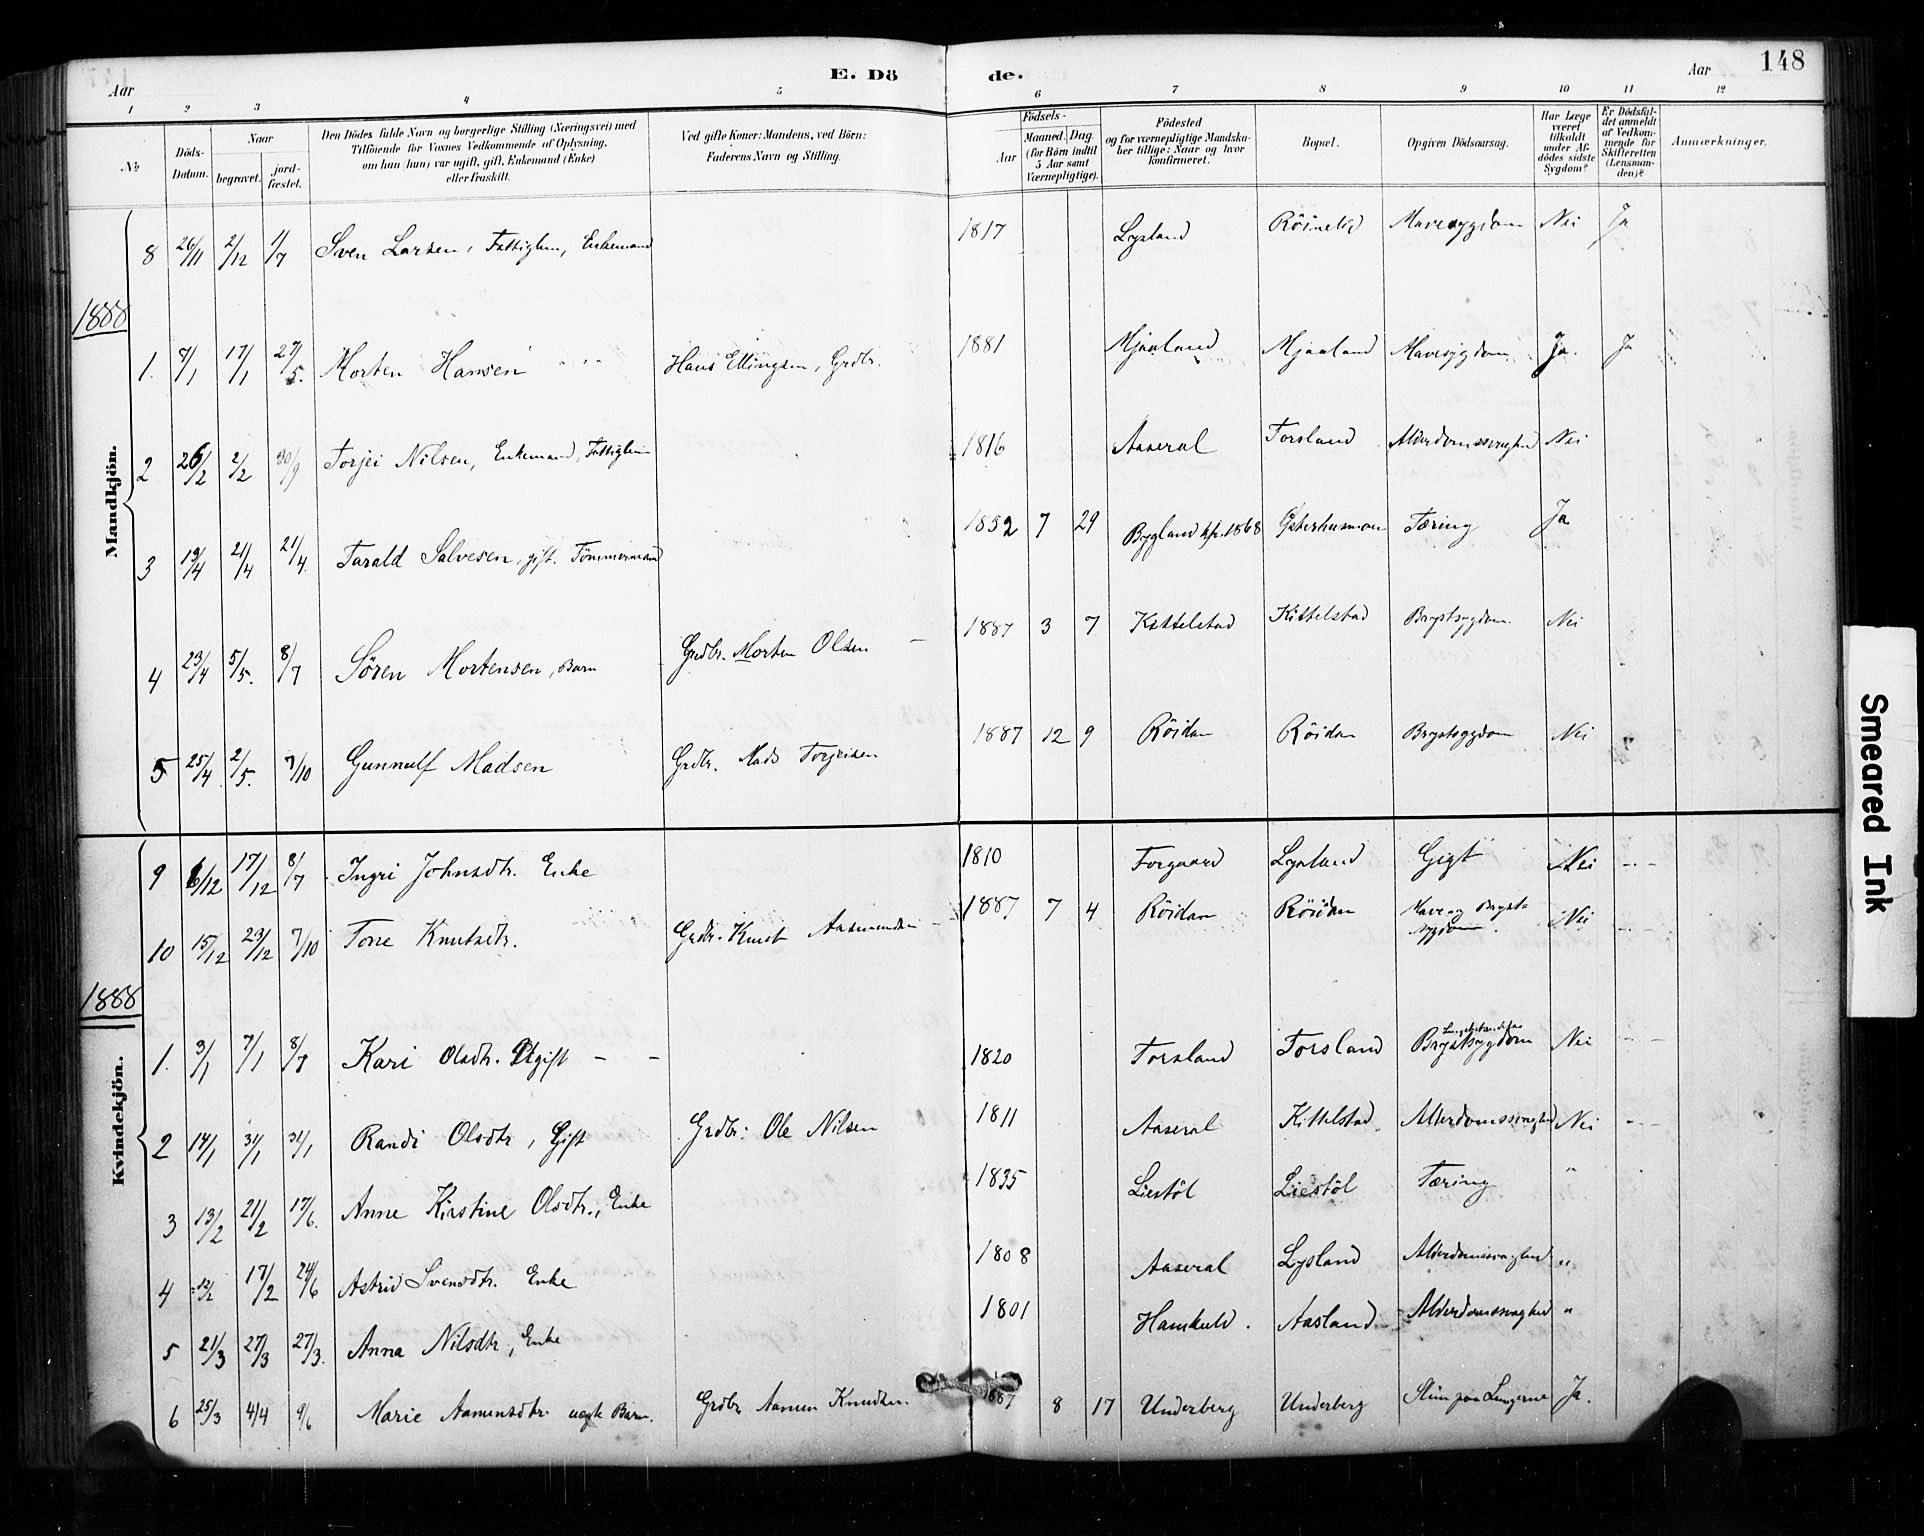 E. Döde.
148
Aar
Aar
1 2 3 4 5 6 7 8 9 10 11 12
No
Döds-Datum.
Naar
begravet.
jord-fæstet.
Den Dödes fulde Navn og borgerlige Stilling (Næringsvei) med
Tilföiende for Voxnes Vedkommende af Oplysning,
om han (hun) var ugift, gift, Enkemand (Enke)
eller fraskilt.
Ved gifte Koner: Mandens, ved Börn:
Faderens Navn og Stilling.
Födsels-
Aar
Maaned. Dag.
(for Börn indtil
5 Aar samt
Værnepligtige).
Födested
og for værnepligtige Mandska-
ber tillige: Naar og hvor
konfirmeret.
Bopæl.
Opgiven Dödsaarsag.
Har Læge
været
tilkaldt
under Af-
dödes sidste
Sygdom?
Er Dödsfal-
det anmeldt
af Vedkom-
mende for
Skifteretten
(Lensman-
den)?
Anmærkninger.
Mandkjön.
8 26/11 2/12 1/7 Sven Larsen, Fattiglem, Enkemand 1817 Lysland Mavesygdom Nei Ja
1888
1. 17/1 27/5. Morten Hansen Hans Ellingsen, Grdbr. 1881 Mjaaland Mjaaland Mavesygdom Ja. Ja
2 26/2 2/2 30/9 Torjei Nilsen, Enkemand, Fattiglem 1816 Aaseral Torsland Alderdomssvaghed Nei
3 19/4 21/4 21/4. Tarald Salvesen, gift. Tömmermand 1852 7 29 Bygland kfr. 1868 Tæring Ja
4 23/4 5/5. 8/7 Sören Mortensen, Barn Grdbr. Morten Olsen 1887 3 7 Kittelstad Kittelstad Brystsygdom. Nei
5 25/4 2/5. 7/10 Gunnulf Madsen Grdbr. Mads Torjeisen 1887 12 9 Röidan Röidan Brystsygdom Nei
Kvindekjön.
9 6/12 17/12 8/7 Ingri Johnsdtr. Enke 1810 Torgaard Lysland Gigt Nei
10 15/12 23/12 7/10 Tone Knutsdtr. Grdbr. Knut Aasmundsen 1887 7 4 Röidan Röidan Mave og Bryst-
sygdom. Nei
1888
1. 3/1 7/1 8/7 Kari Olsdtr. Ugift 1820 Torsland Torsland Brystsygdom Nei
2 14/1 31/1 31/1 Randi Olsdtr, Gift Grdbr: Ole Nilsen 1811 Aaseral Kittelstad. Alderdomssvaghed Nei
3 13/2 21/2 17/6. Anne Kirstine Olsdtr., Enke 1835 Liestöl Liestöl Tæring "
4 12/2 17/2 24/6 Astrid Svensdtr. Enke 1808 Aaseral Lysland Alderdomssvaghed "
5 21/3 27/3 27/3. Anna Nilsdtr, Enke 1801 Aasland Alderdomssvaghed "
6 25/3 4/4 9/6 Marie Aamunsdtr. Barn. Grdbr Aamun Knudsen 1887 8 17 Underberg Underberg Slim paa Lungerne Ja.
Smeared Ink